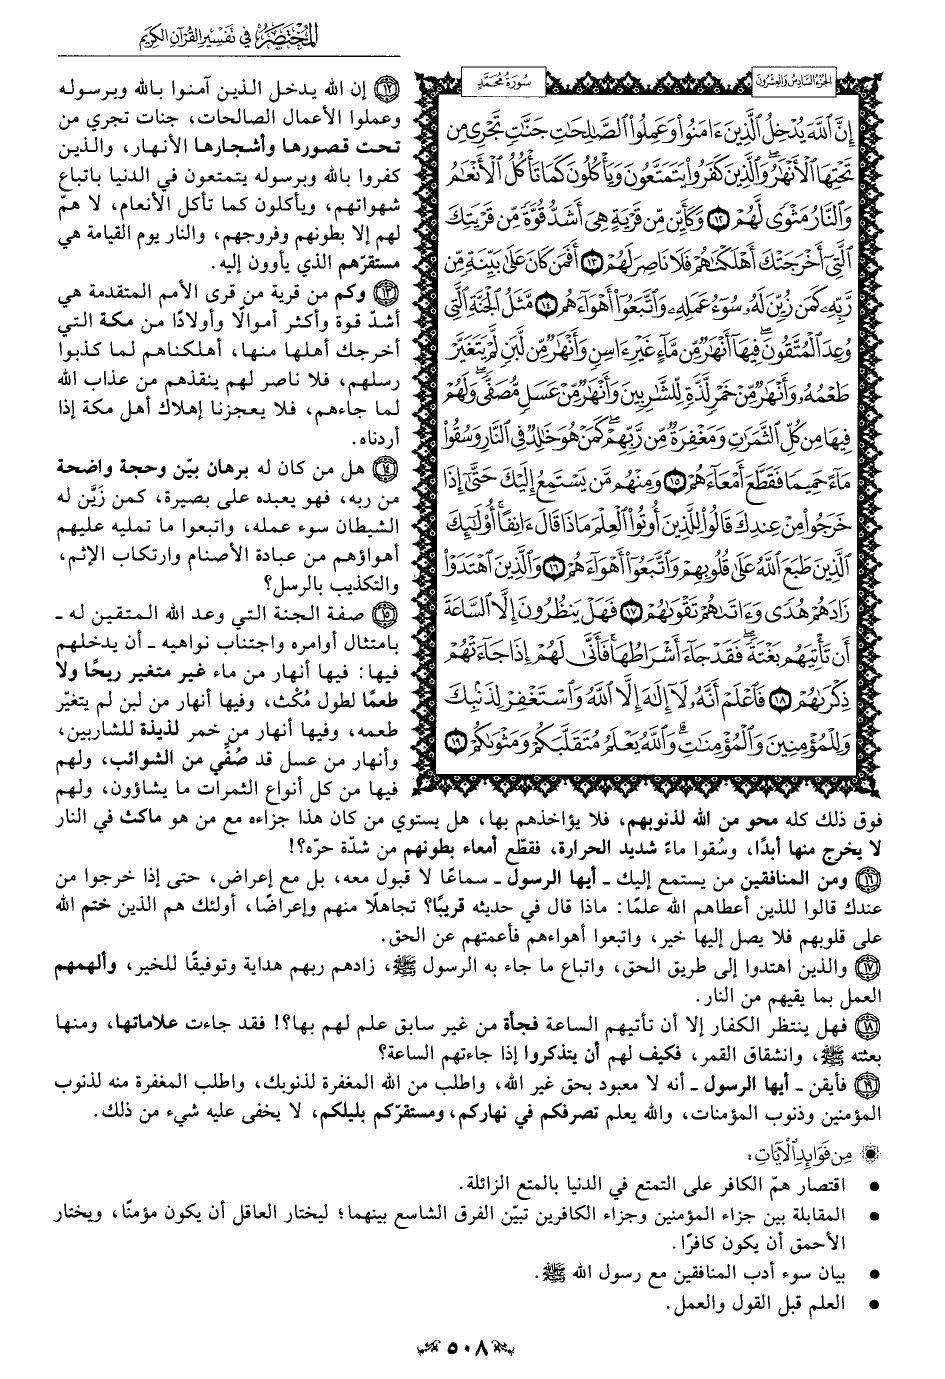 المختصر في تفسير القرآن الكريم
الجزء السادس والعشرون
سورة محمد
إِنَّ ٱللَّهَ يُدْخِلُ ٱلَّذِينَ ءَامَنُوا۟ وَعَمِلُوا۟ ٱلصَّـٰلِحَـٰتِ جَنَّـٰتٍ تَجْرِى مِن
تَحْتِهَا ٱلْأَنْهَـٰرُ ۖ وَٱلَّذِينَ كَفَرُوا۟ يَتَمَتَّعُونَ وَيَأْكُلُونَ كَمَا تَأْكُلُ ٱلْأَنْعَـٰمُ
وَٱلنَّارُ مَثْوًى لَّهُمْ ١٢ وَكَأَيِّن مِّن قَرْيَةٍ هِىَ أَشَدُّ قُوَّةً مِّن قَرْيَتِكَ
ٱلَّتِىٓ أَخْرَجَتْكَ أَهْلَكْنَـٰهُمْ فَلَا نَاصِرَ لَهُمْ ١٣ أَفَمَن كَانَ عَلَىٰ بَيِّنَةٍ مِّن
رَّبِّهِۦ كَمَن زُيِّنَ لَهُۥ سُوٓءُ عَمَلِهِۦ وَٱتَّبَعُوٓا۟ أَهْوَآءَهُم ١٤ مَّثَلُ ٱلْجَنَّةِ ٱلَّتِى
وُعِدَ ٱلْمُتَّقُونَ ۖ فِيهَآ أَنْهَـٰرٌ مِّن مَّآءٍ غَيْرِ ءَاسِنٍ وَأَنْهَـٰرٌ مِّن لَّبَنٍ لَّمْ يَتَغَيَّرْ
طَعْمُهُۥ وَأَنْهَـٰرٌ مِّنْ خَمْرٍ لَّذَّةٍ لِّلشَّـٰرِبِينَ وَأَنْهَـٰرٌ مِّنْ عَسَلٍ مُّصَفًّى ۖ وَلَهُمْ
فِيهَا مِن كُلِّ ٱلثَّمَرَٰتِ وَمَغْفِرَةٌ مِّن رَّبِّهِمْ ۖ كَمَنْ هُوَ خَـٰلِدٌ فِى ٱلنَّارِ وَسُقُوا۟
مَآءً حَمِيمًا فَقَطَّعَ أَمْعَآءَهُمْ ١٥ وَمِنْهُم مَّن يَسْتَمِعُ إِلَيْكَ حَتَّىٰٓ إِذَا
خَرَجُوا۟ مِنْ عِندِكَ قَالُوا۟ لِلَّذِينَ أُوتُوا۟ ٱلْعِلْمَ مَاذَا قَالَ ءَانِفًا ۚ أُو۟لَـٰٓئِكَ
ٱلَّذِينَ طَبَعَ ٱللَّهُ عَلَىٰ قُلُوبِهِمْ وَٱتَّبَعُوٓا۟ أَهْوَآءَهُمْ ١٦ وَٱلَّذِينَ ٱهْتَدَوْا۟
زَادَهُمْ هُدًى وَءَاتَىٰهُمْ تَقْوَىٰهُمْ ١٧ فَهَلْ يَنظُرُونَ إِلَّا ٱلسَّاعَةَ
أَن تَأْتِيَهُم بَغْتَةً ۖ فَقَدْ جَآءَ أَشْرَاطُهَا ۚ فَأَنَّىٰ لَهُمْ إِذَا جَآءَتْهُمْ
ذِكْرَىٰهُمْ ١٨ فَٱعْلَمْ أَنَّهُۥ لَآ إِلَـٰهَ إِلَّا ٱللَّهُ وَٱسْتَغْفِرْ لِذَنۢبِكَ
وَلِلْمُؤْمِنِينَ وَٱلْمُؤْمِنَـٰتِ ۗ وَٱللَّهُ يَعْلَمُ مُتَقَلَّبَكُمْ وَمَثْوَىٰكُمْ ١٩
١٢ إن الله يدخل الذين آمنوا بالله وبرسوله
وعملوا الأعمال الصالحات، جنات تجري من
تحت قصورها وأشجارها الأنهار، والذين
كفروا بالله وبرسوله يتمتعون في الدنيا باتباع
شهواتهم، ويأكلون كما تأكل الأنعام، لا همّ
لهم إلا بطونهم وفروجهم، والنار يوم القيامة هي
مستقرّهم الذي يأوون إليه.
١٣ وكم من قرية من قرى الأمم المتقدمة هي
أشدّ قوة وأكثر أموالًا وأولادًا من مكة التي
أخرجك أهلها منها، أهلكناهم لما كذبوا
رسلهم، فلا ناصر لهم ينقذهم من عذاب الله
لما جاءهم، فلا يعجزنا إهلاك أهل مكة إذا
أردناه.
١٤ هل من كان له برهان بيّن وحجة واضحة
من ربه، فهو يعبده على بصيرة، كمن زَيَّن له
الشيطان سوء عمله، واتبعوا ما تمليه عليهم
أهواؤهم من عبادة الأصنام وارتكاب الإثم،
والتكذيب بالرسل؟
١٥ صفة الجنة التي وعد الله المتقين له ـ
بامتثال أوامره واجتناب نواهيه ـ أن يدخلهم
فيها: فيها أنهار من ماء غير متغير ريحًا ولا
طعمًا لطول مُكْث، وفيها أنهار من لبن لم يتغيّر
طعمه، وفيها أنهار من خمر لذيذة للشاربين،
وأنهار من عسل قد صُفِّي من الشوائب، ولهم
فيها من كل أنواع الثمرات ما يشاؤون، ولهم
فوق ذلك كله محو من الله لذنوبهم، فلا يؤاخذهم بها، هل يستوي من كان هذا جزاءه مع من هو ماكث في النار
لا يخرج منها أبدًا، وسُقوا ماءً شديد الحرارة، فقطّع أمعاء بطونهم من شدّة حرّه؟!
١٦ ومن المنافقين من يستمع إليك ـ أيها الرسول ـ سماعًا لا قبول معه، بل مع إعراض، حتى إذا خرجوا من
عندك قالوا للذين أعطاهم الله علمًا: ماذا قال في حديثه قريبًا؟ تجاهلًا منهم وإعراضًا، أولئك هم الذين ختم الله
على قلوبهم فلا يصل إليها خير، واتبعوا أهواءهم فأعمتهم عن الحق.
١٧ والذين اهتدوا إلى طريق الحق، واتباع ما جاء به الرسول ﷺ، زادهم ربهم هداية وتوفيقًا للخير، وألهمهم
العمل بما يقيهم من النار.
١٨ فهل ينتظر الكفار إلا أن تأتيهم الساعة فجأة من غير سابق علم لهم بها؟! فقد جاءت علاماتها، ومنها
بعثته ﷺ، وانشقاق القمر، فكيف لهم أن يتذكروا إذا جاءتهم الساعة؟
١٩ فأيقن ـ أيها الرسول ـ أنه لا معبود بحق غير الله، واطلب من الله المغفرة لذنوبك، واطلب المغفرة منه لذنوب
المؤمنين وذنوب المؤمنات، والله يعلم تصرفكم في نهاركم، ومستقرّكم بليلكم، لا يخفى عليه شيء من ذلك.
من فوائد الآيات:
• اقتصار همّ الكافر على التمتع في الدنيا بالمتع الزائلة.
• المقابلة بين جزاء المؤمنين وجزاء الكافرين تبيّن الفرق الشاسع بينهما؛ ليختار العاقل أن يكون مؤمنًا، ويختار
الأحمق أن يكون كافرًا.
• بيان سوء أدب المنافقين مع رسول الله ﷺ.
• العلم قبل القول والعمل.
٥٠٨